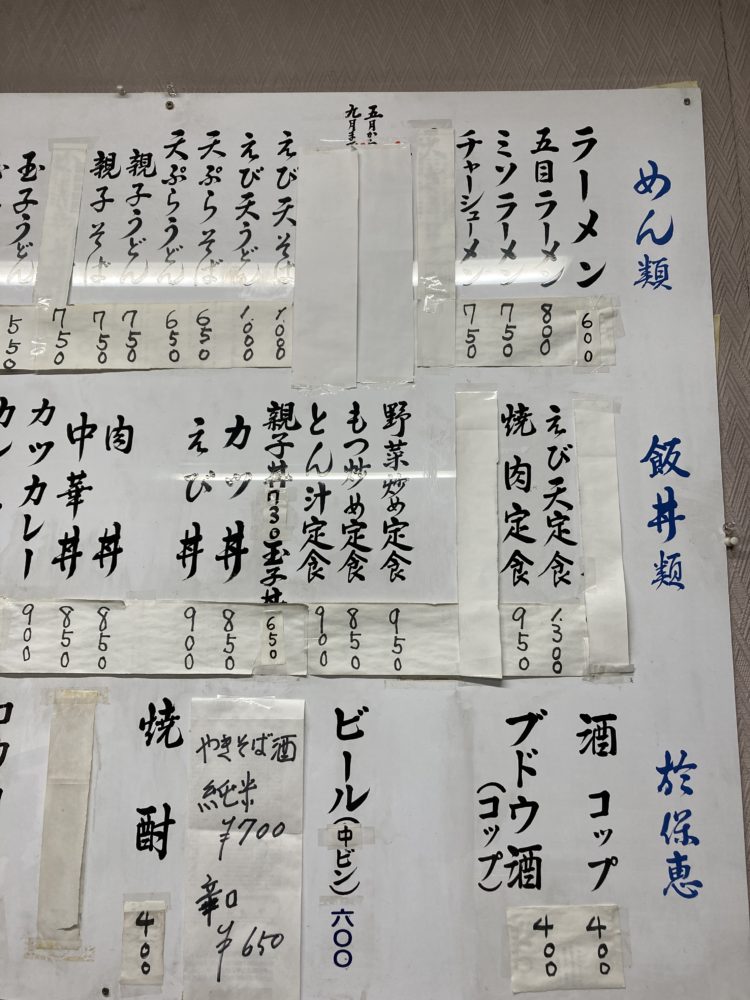 めん類
ラーメン 600
五目ラーメン 800
ミソラーメン 750
チャーシューメン 750
五月から
九月まで
えび天そば 1,000
えび天うどん 1,000
天ぷらそば 650
天ぷらうどん 650
親子うどん 750
親子そば 750
750
玉子うどん 550
飯丼類
えび天定食 1,300
焼肉定食 950
野菜炒め定食 950
もつ炒め定食 850
とん汁定食 900
親子丼730玉子丼 650
カツ丼 850
えび丼 900
肉丼 850
中華丼 850
カツカレー 900
於保恵
酒 コップ 400
ブドウ酒(コップ) 400
ビール(中ビン) 六〇〇
やきそば酒
純米
¥700
辛口
¥650
焼酎 400